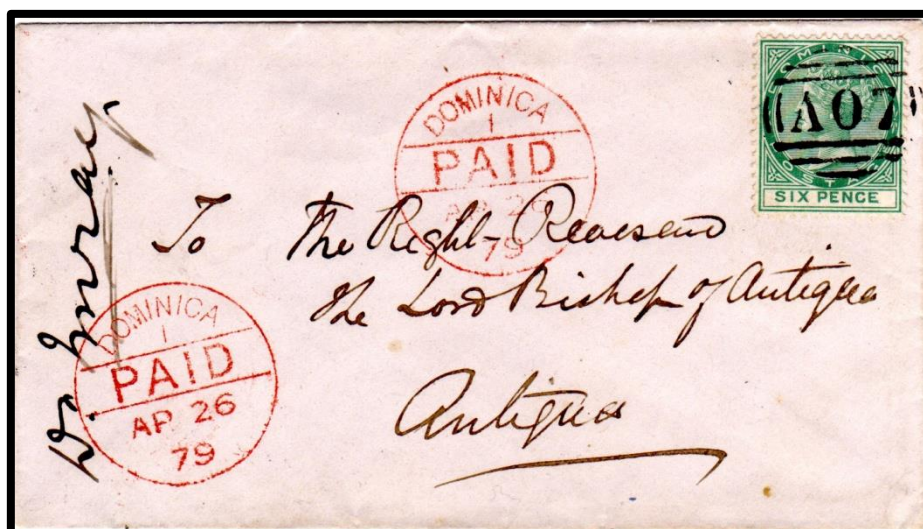 DOMINICA
1
PAID
AP 26
79
A07
SIX PENCE
To The Right Reverend
The Lord Bishop of Antigua
Antigua
DOMINICA
1
PAID
AP 26
79
Dr. Imray